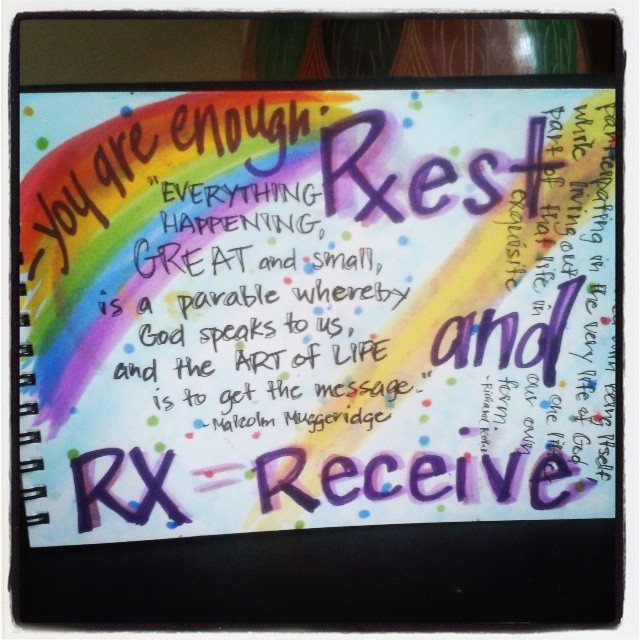 -You are enough.
Rxest
"EVERYTHING
HAPPENING,
GREAT and small,
is a parable whereby
God speaks to us,
and the ART of LIFE
is to get the message."
-Malcolm Muggeridge
and
RX = Receive
being itself,
participating in the very life of God,
while living out one little
part of that life in our own
exquisite form.
-Richard Rohr